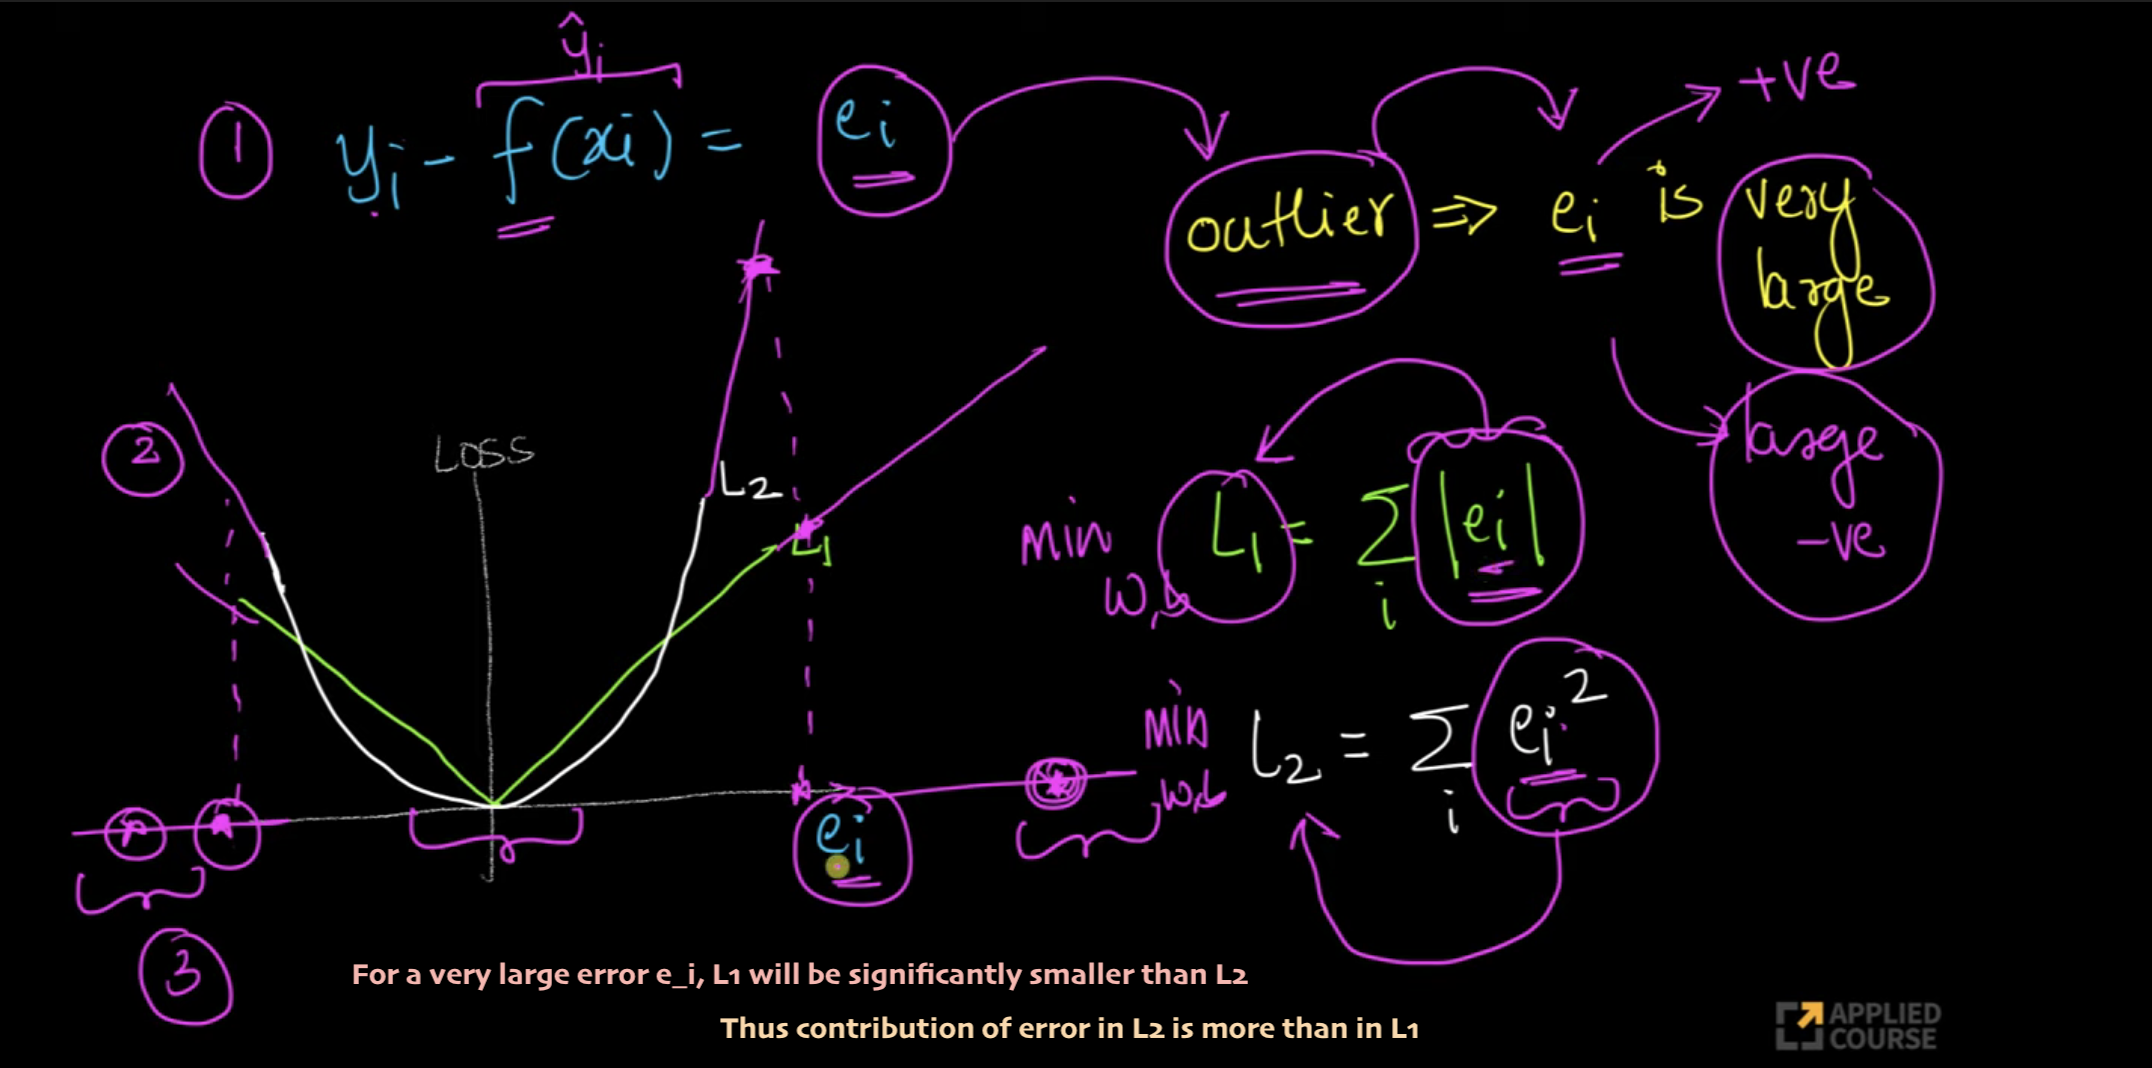 ŷi
① yi - f(xi) = ei
outlier ⇒ ei is very large
+ve
large -ve
②
LOSS
L2
L1
min w,b L1 = Σi |ei|
min w,b L2 = Σi ei²
ei
③
For a very large error e_i, L1 will be significantly smaller than L2
Thus contribution of error in L2 is more than in L1
APPLIED
COURSE